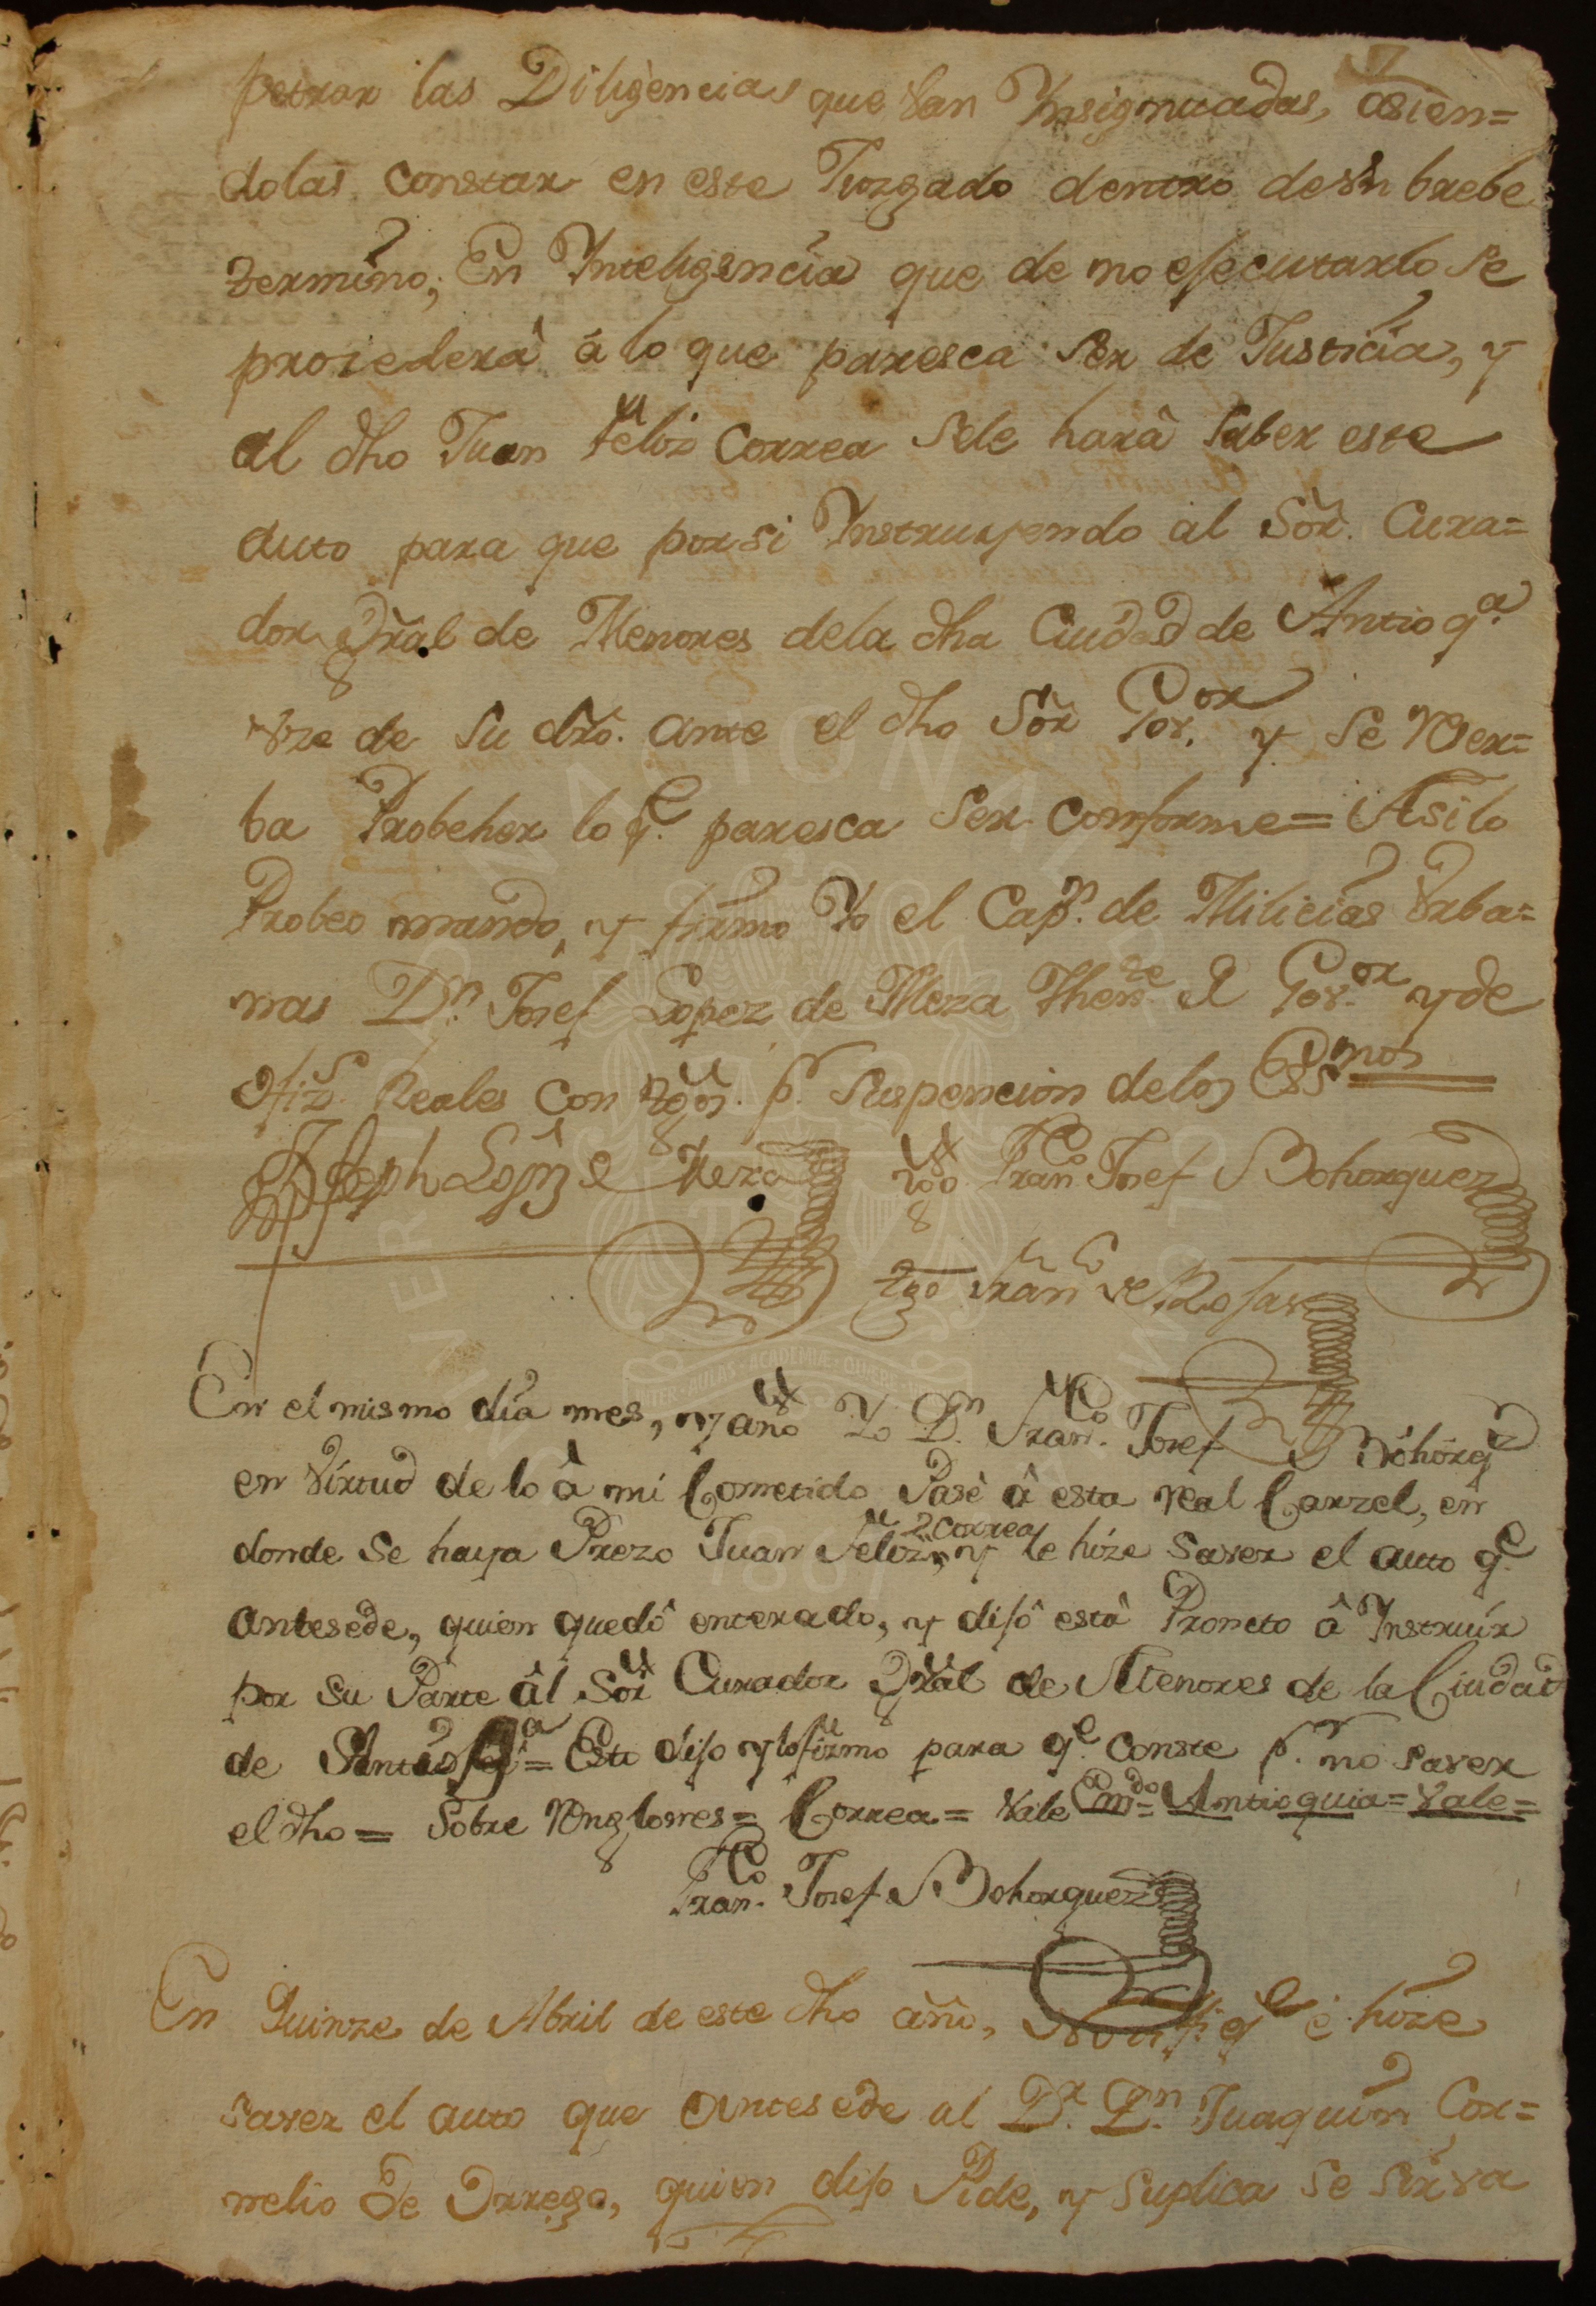 7
petrar las Diligencias que van Ynsignuadas, asien=
dolas constar en este Juzgado dentro de vn brebe
termino; En Ynteligencia que de no ejecutarlo se
prozederâ â lo que paresca ser de Justicia, y
al dho Juan Feliz Correa sele harâ saber este
auto para que por si Ynstruyendo al Sor. Cura=
dor Gral de Menores dela dha Ciudad de Antioqa.
vze de su dro. ante el dho Sor Gor. y se recer=
ba Probeher lo qe. paresca ser conforme= Asilo
Probeo mando, y firmo Yo el Capn. de Milicias Vrba=
nas Dn. Josef Lopez de Meza Thente. de Gor.or y de
ofizs. Reales con tgos. pr. suspencion delos Essnos
Joseph Lopz de Meza tgo Franco Josef Bohorquez
tgo Franco de Rojas
En el mismo dia mes, y año Yo Dn. Franco. Josef Bohorqz
en virtud de lo â mi Cometido Pasè â esta real Carzel, en
donde se haya Prezo Juan Feliz, y le hize saver el auto qe.
Correa
antesede, quien quedô enterado, y dijô està Promto â Instruir
por su Parte âl Sor Curador Gral de Menores de la Ciudad
de Antioqa= Esto dijo y lo firmo para qe. conste pr. no saver
el dho= Sobre renglones= Correa= Vale Emdo= Antioquia= Vale=
Franco. Josef Bohorquez
En Quinze de Abril de este dho año, Notifiqe è hize
saver el auto que Antesede al Dr. Dn. Juaquin Cor=
nelio de Orrego, quien dijo Pide, y suplica se sirva